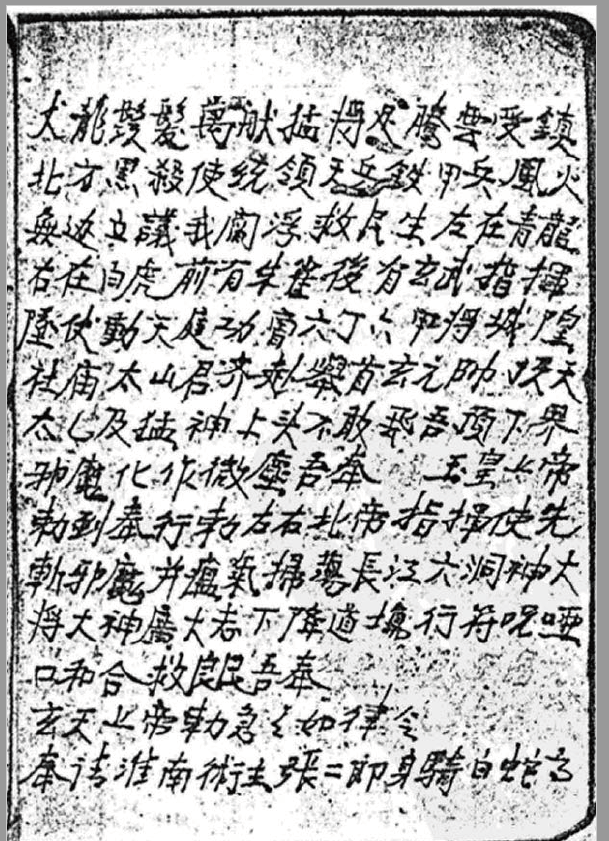 犬龍鬚髮萬猷猛将足騰雲受鎮
北方黑殺使統領天兵鉄甲兵風火
無边立議我閣浮救民生左在青龍
右在白虎前有朱雀後有玄武指揮
使動天庭功曹六丁六甲将城隍
社庙太山君齐赴舉首玄元帅天
太乙及猛神上头不敢飛吾頂下界
邪魔化作微塵吾奉 玉皇上帝
勅到奉行勅左右北帝指揮使先
斬邪魔并瘟氣掃蕩長江六洞神大
将大神廣大志下降道塲行符呪啞
口和合救良民吾奉
玄天上帝勅急々如律令
奉請淮南術主張二郎身騎白蛇